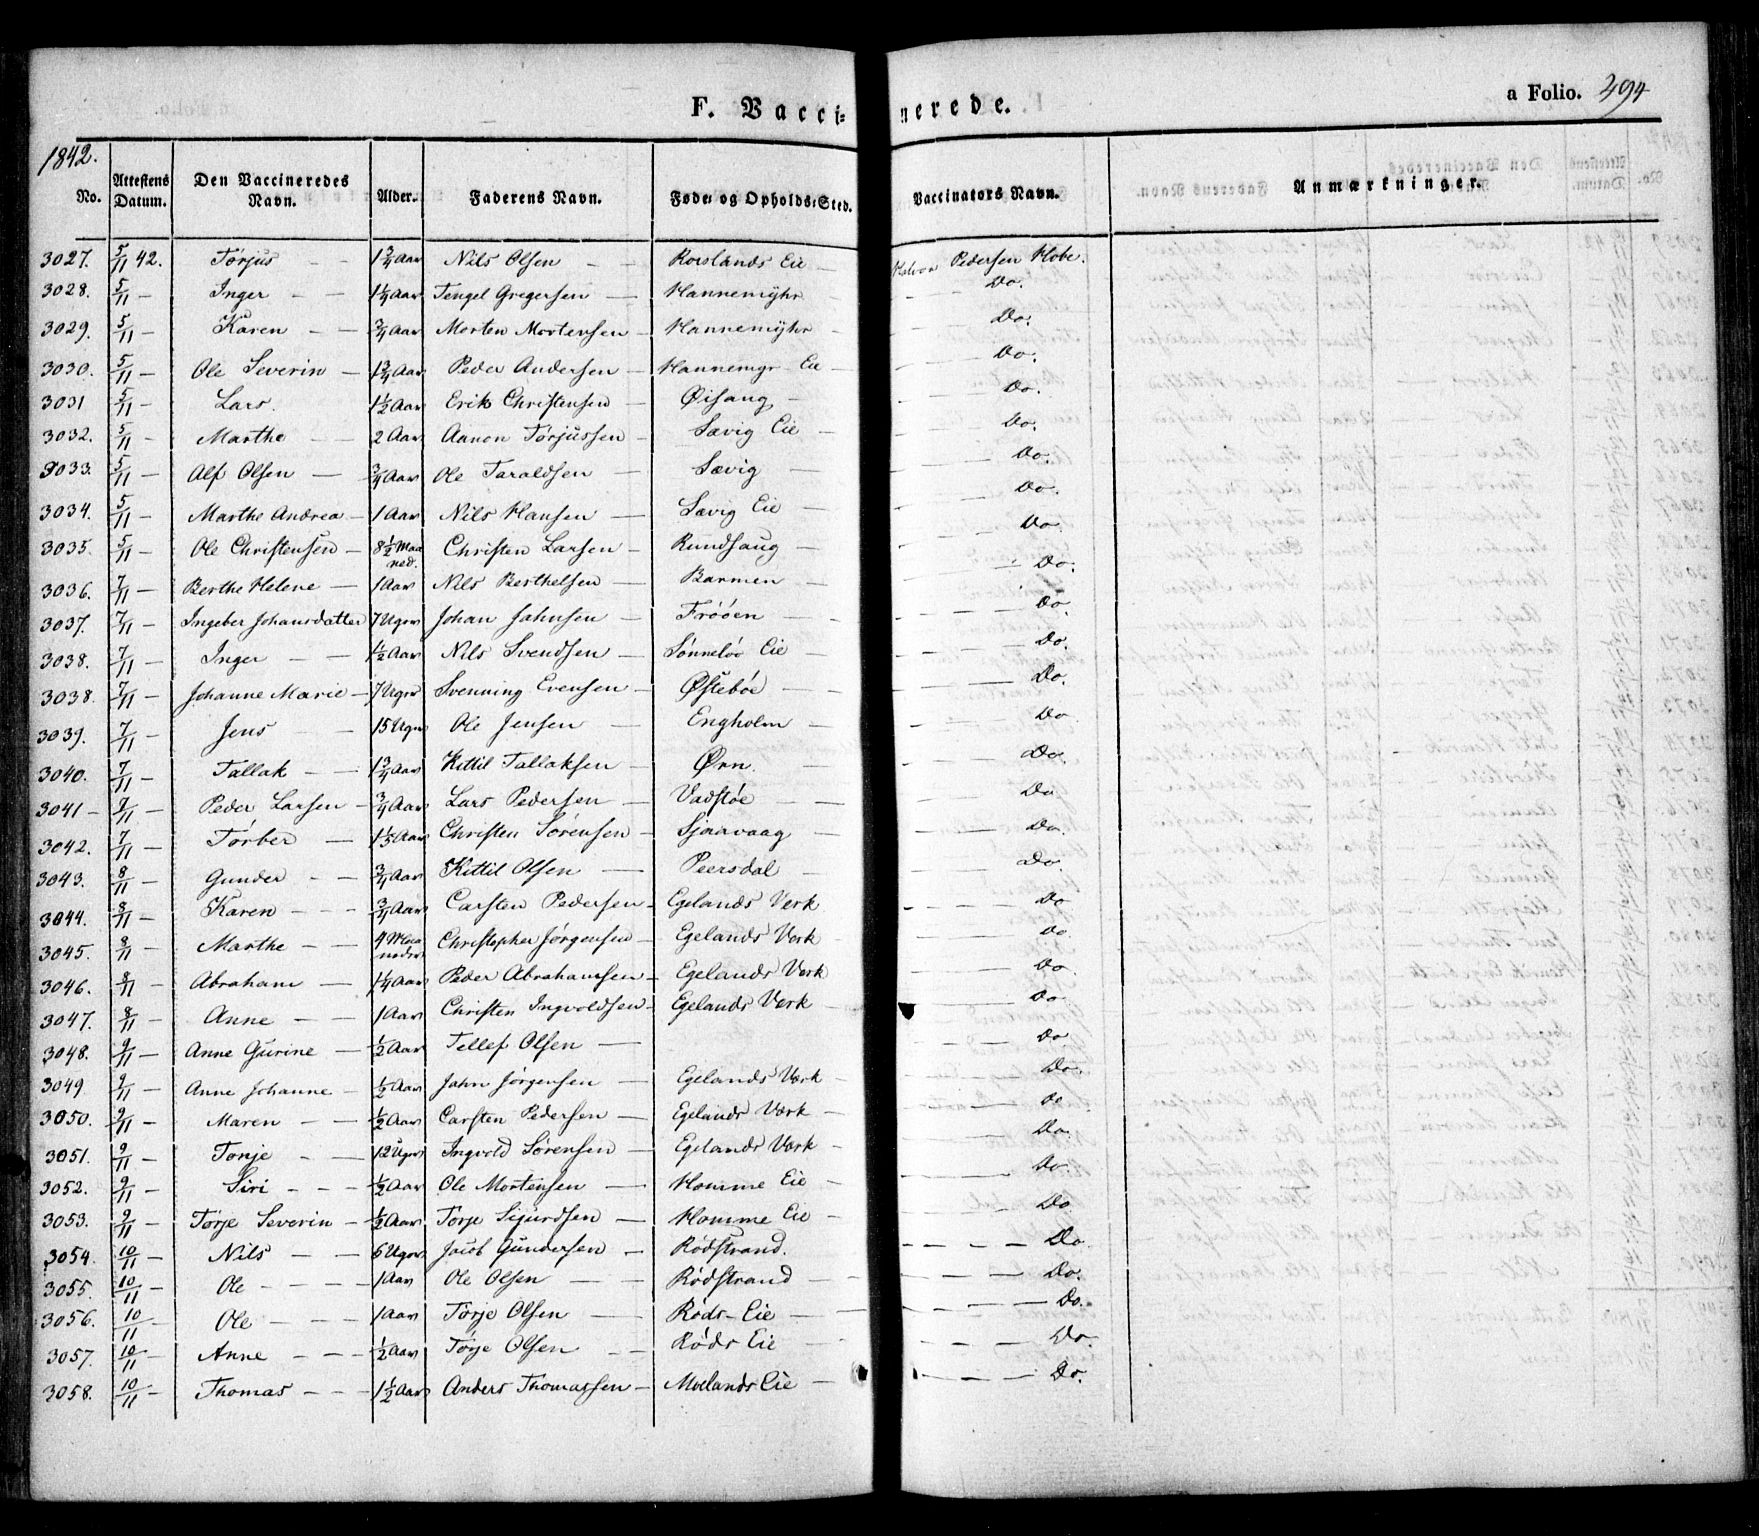 F. Vaccinerede.
a Folio. 394
1842.
No. Attestens Datum. Den Vaccineredes Navn. Alder. Faderens Navn. Føde- og Opholds-Sted. Vaccinators Navn. Anmærkninger.
3027. 5/11 42. Tørjus — — 1 3/4 Aar Nils Olsen — — Roeslands Eie — Halvor Pedersen Hobe.
3028. 5/11 — Inger — — 1 1/4 Aar Tengel Gregersen — Hannemyhr — — — — Do.
3029. 5/11 — Karen — — 3/4 Aar Morten Mortensen — Hannemyhr — — — — Do.
3030. 5/11 — Ole Severin — 1 3/4 Aar Peder Andersen — Hannemyr Eie — — — — Do.
3031 5/11 — Lars. 1 1/2 Aar Erik Christensen — Øisang — — — — Do.
3032. 5/11 — Marthe — 2 Aar Aanon Tørjussen — Sævig Eie — — — — Do.
3033. 5/11 — Alf Olsen — 3/4 Aar Ole Taraldsen — Sævig — — — — Do.
3034. 5/11 — Marthe Andrea — 1 Aar Nils Hansen — Sævig Eie — — — — Do.
3035. 5/11 — Ole Christensen — 8 1/2 Maaned. Christen Larsen — Rundsaug — — — — Do.
3036. 7/11 — Berthe Helene — 1 Aar Nils Berthelsen — Barmen — — Do.
3037. 7/11 — Ingeber Johansdatter 7 Uger Johan Jahnsen — Frøöen — — — — Do.
3038. 7/11 — Inger — — 1/2 Aar Nils Svendsen — Sønneløv Eie — — — — Do.
3038. 7/11 — Johanne Marie — 7 Uger Svenning Evensen — Østebøe — — — — Do.
3039. 7/11 — Jens — — 15 Uger Ole Jensen — Engholm — — — — Do
3040. 7/11 — Tallak — — 1 3/4 Aar Kittil Tallaksen — Ørn. — — — — Do.
3041 — 7/11 — Peder Larsen — 3/4 Aar Lars Pedersen — Vadstøe — — — — Do
3042. 7/11 — Tørber — 1 1/5 Aar Christen Sørensen — Sjaavaag — — — — Do.
3043. 8/11 — Gunder — — 3/4 Aar Kittil Olsen — Peersdal — — — — Do.
3044. 8/11 — Karen — — — 3/4 Aar Carsten Pedersen — Egelands Verk — — — Do
3045. 8/11 — Marthe — — 4 Maaneder Christopher Jørgensen — Egelands Verk — — — — Do.
3046. 8/11 — Abraham — 1 1/4 Aar Peder Abrahamsen — Egelands Verk — — — — Do.
3047. 8/11 — Anne — — 1 Aar Christen Ingvoldsen — Egelands Verk — — — — Do
3048. 9/11 — Anne Gurine — 1/2 Aar Tellef Olsen — — — — Do.
3049. 9/11 — Anne Johanne — 1/2 Aar Jahn Jørgensen — Egelands Værk — — — — Do.
3050. 9/11 — Maren — — 1/2 Aar Carsten Pedersen — Egelands Værk — — — — Do
3051. 9/11 — Tonje — — 12 Uger Ingvold Sørensen — Egelands Værk — — — — Do.
3052. 9/11 — Siri — — — 1/2 Aar Ole Mortensen — Homme Eie — — — — Do.
3053. 9/11 — Tørje Severin — 1/2 Aar Tørje Sigurdsen — Homme Eie — — — — Do
3054. 10/11 — Nils — — 6 Uger Jacob Gundersen — Rødstrand. — — — — Do.
3055. 10/11 — Ole — — — 1 Aar Ole Olsen — — Rødstrand — — — — — Do.
3056. 10/11 — Ole — — — 1 Aar Tørje Olsen — Røds-Eie — — — — Do.
3057. 10/11 — Anne — — — 1/2 Aar Tørje Olsen — — Røds Eie — — — — Do.
3058. 10/11 — Thomas — — — 1 1/2 Aar Anders Thomassen — Moelands Eie — — — — Do.